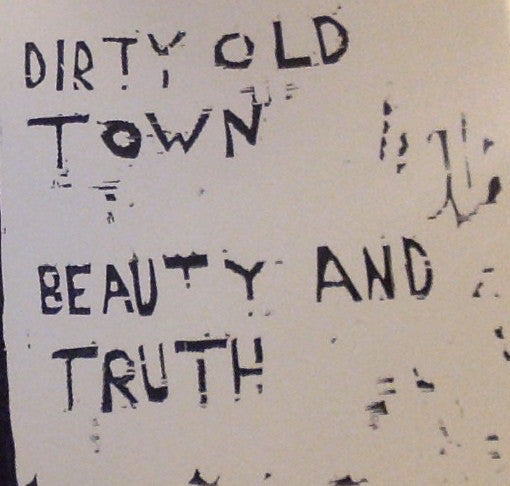 DIRTY OLD
TOWN
BEAUTY AND
TRUTH